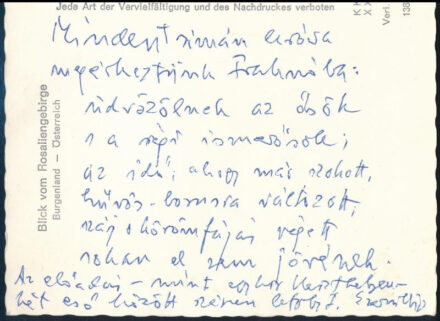 Jede Art der Vervielfältigung und des Nachdruckes verboten
Blick vom Rosaliengebirge
Burgenland – Österreich
Verl.
138
Mindent simán
megérkeztünk Fraknóba:
üdvözölnek az ősök
s a régi ismerősök;
az idő, ahogy már szokott,
hűvös-borusra változott,
száj s körömfájás végett
sokan el sem jövének.
Az előadás – mint egykor
hét eső között szépen lefolyt.